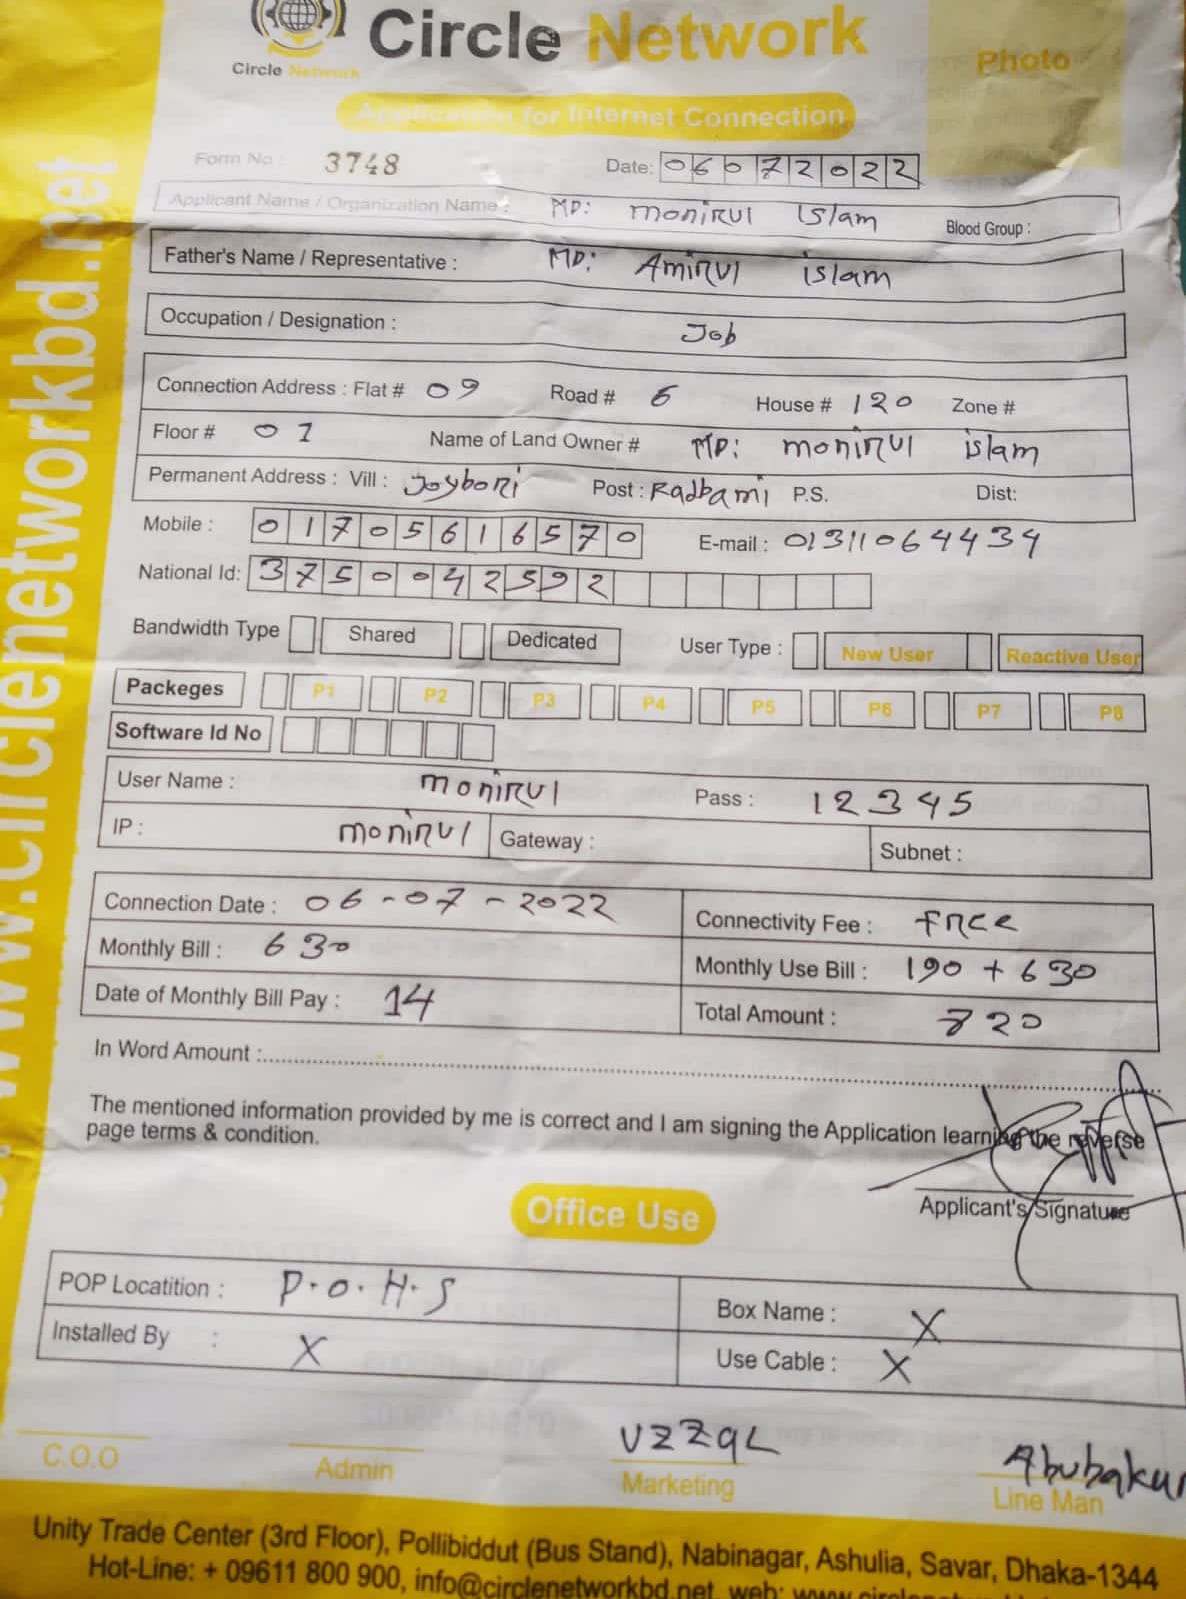 Circle Network
Circle Network
Photo
Application for Internet Connection
Form No : 3748 Date: 06072022
Applicant Name / Organization Name : MD: monirul islam Blood Group :
Father's Name / Representative : MD: Amirul islam
Occupation / Designation : Job
Connection Address : Flat # 09 Road # 6 House # 120 Zone #
Floor # 01 Name of Land Owner # MD: monirul islam
Permanent Address : Vill : Joybori Post : Radbami P.S. Dist:
Mobile : 01705616570 E-mail : 01311064434
National Id: 3750042592
Bandwidth Type Shared Dedicated User Type : New User Reactive User
Packeges P1 P2 P3 P4 P5 P6 P7 P8
Software Id No
User Name : monirul Pass : 12345
IP : monirul Gateway : Subnet :
Connection Date : 06-07-2022 Connectivity Fee : Free
Monthly Bill : 630 Monthly Use Bill : 190 + 630
Date of Monthly Bill Pay : 14 Total Amount : 820
In Word Amount :
The mentioned information provided by me is correct and I am signing the Application learning the reverse
page terms & condition.
Applicant's Signature
Office Use
POP Locatition : P.O.H.S Box Name : X
Installed By : X Use Cable : X
C.O.O Admin Marketing Abubakur
Line Man
Unity Trade Center (3rd Floor), Pollibiddut (Bus Stand), Nabinagar, Ashulia, Savar, Dhaka-1344
Hot-Line: + 09611 800 900, info@circlenetworkbd.net, web:
www.circlenetworkbd.net